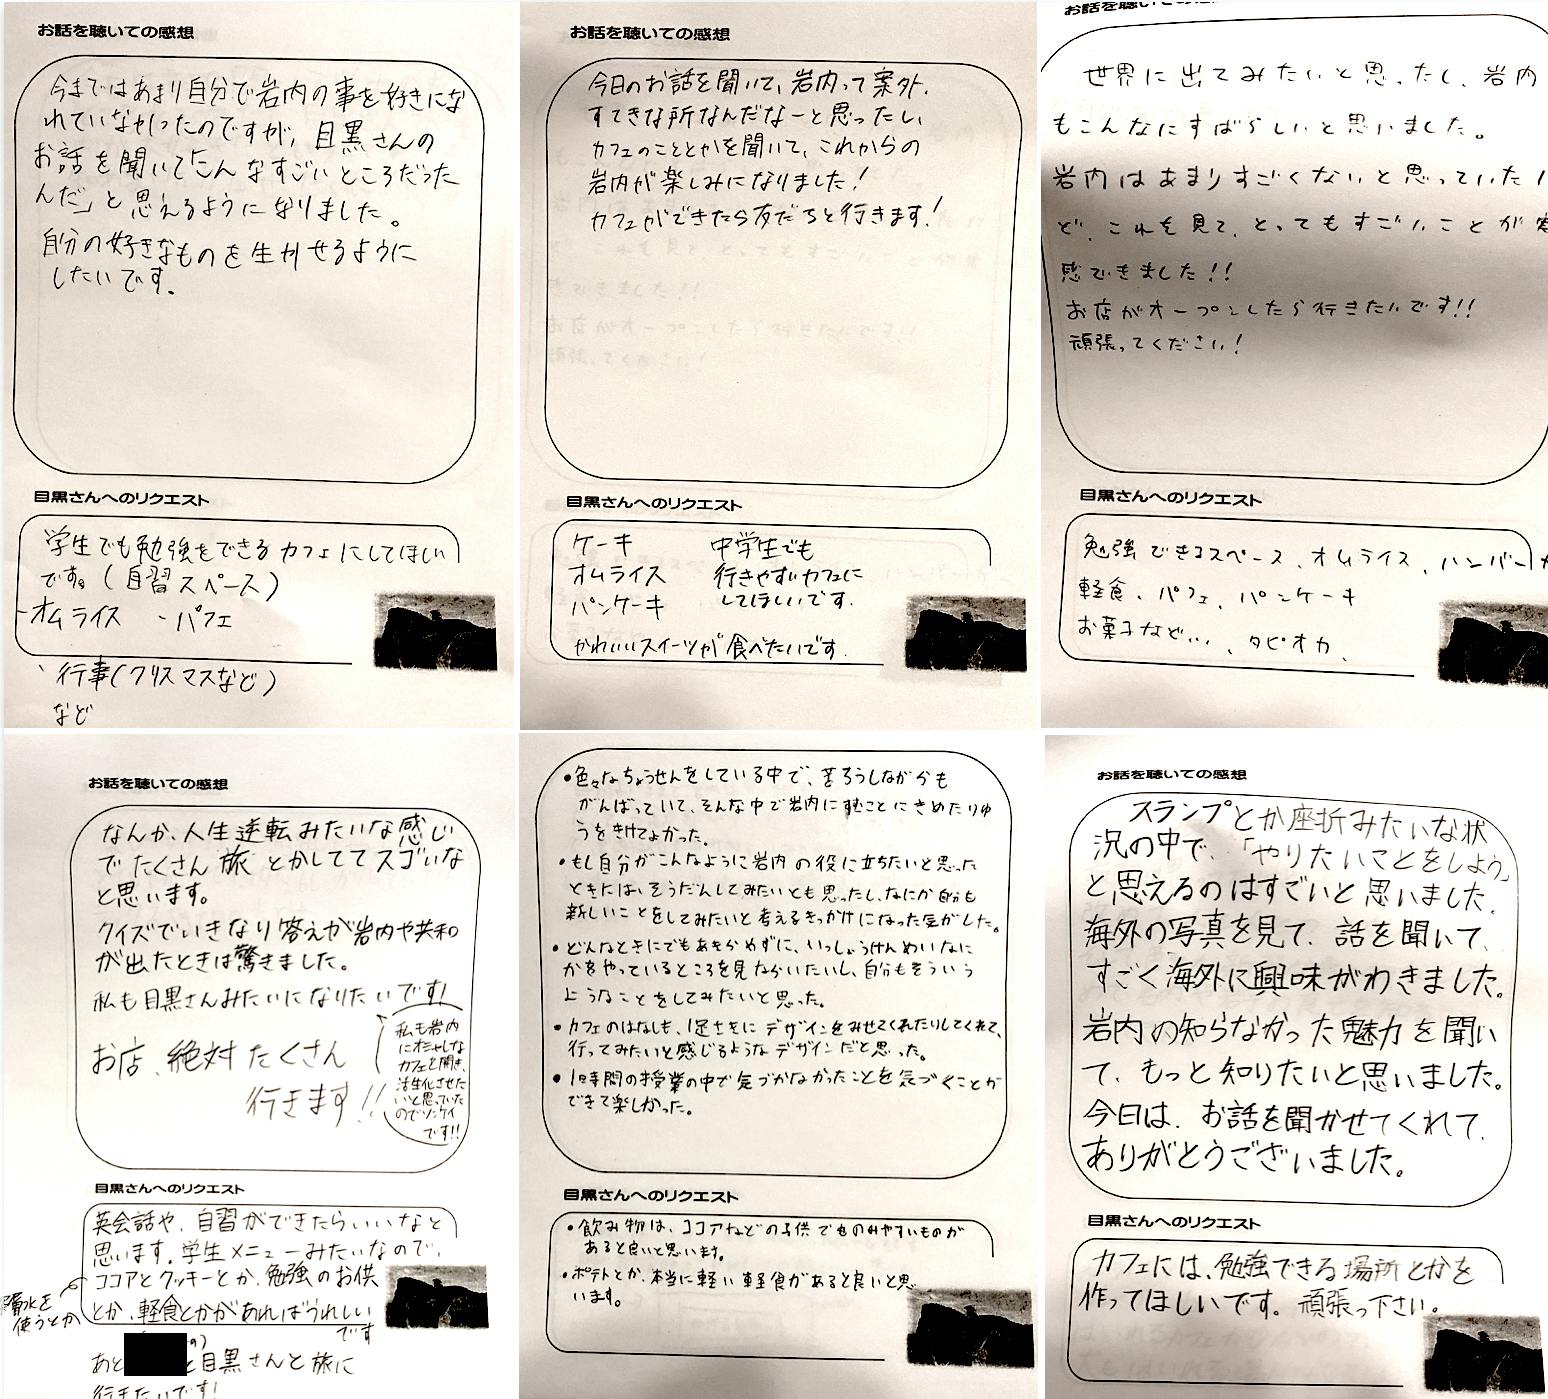 お話を聴いての感想
今まではあまり自分で岩内の事を好きにな
れていなかったのですが、目黒さんの
お話を聞いて「こんなすごいところだった
んだ」と思えるようになりました。
自分の好きなものを生かせるように
したいです。
目黒さんへのリクエスト
学生でも勉強をできるカフェにしてほしい
です。(自習スペース)
-オムライス -パフェ
、行事(クリスマスなど)
など
お話を聴いての感想
今日のお話を聞いて、岩内って案外、
すてきな所なんだなーと思ったし
カフェのこととかを聞いて、これからの
岩内が楽しみになりました!
カフェができたら友だちと行きます!
目黒さんへのリクエスト
ケーキ
オムライス
パンケーキ
中学生でも
行きやすいカフェに
してほしいです.
かわいいスイーツが食べたいです.
お話を聴いての感想
世界に出てみたいと思ったし、岩内
もこんなにすばらしいと思いました。
岩内はあまりすごくないと思っていたけ
ど、これを見て、とってもすごいことが実
感できました!!
お店がオープンしたら行きたいです!!
頑張ってください!
目黒さんへのリクエスト
勉強できるスペース、オムライス、ハンバーガ
軽食、パフェ、パンケーキ
お菓子など...、タピオカ、
お話を聴いての感想
なんか、人生逆転みたいな感じ
でたくさん旅とかしててスゴいな
と思います。
クイズでいきなり答えが岩内や共和
が出たときは驚きました。
私も目黒さんみたいになりたいです!
お店、絶対たくさん
行きます!!
私も岩内
にオシャレな
カフェを開き、
活性化させた
いと思っていた
のでソンケイ
です!!
目黒さんへのリクエスト
英会話や、自習ができたらいいなと
思います。学生メニューみたいなので、
ココアとクッキーとか、勉強のお供
とか、軽食とかがあればうれしい
です
水を
使うとか
あと
と目黒さんと旅に
行きたいです!
•色々なちょうせんをしている中で、苦ろうしながらも
がんばっていて、そんな中で岩内にすむことにきめたりゆ
うをきけてよかった。
•もし自分がこんなように岩内の役に立ちたいと思った
ときには、そうだんしてみたいとも思ったし、なにか自分も
新しいことをしてみたいと考えるきっかけになった気がした。
•どんなときにでもあきらめずに、いっしょうけんめいなに
かをやっているところを見ならいたいし、自分もそういう
ようなことをしてみたいと思った。
•カフェのはなしも、1足さきにデザインをみせてくれたりしてくれて、
行ってみたいと感じるようなデザインだと思った。
•1時間の授業の中で気づかなかったことを気づくことが
できて楽しかった。
目黒さんへのリクエスト
•飲み物は、ココアなどの子供でものみやすいものが
あると良いと思います。
•ポテトとか、本当に軽い軽食があると良いと思
います。
お話を聴いての感想
スランプとか座折みたいな状
況の中で、「やりたいことをしよう」
と思えるのはすごいと思いました.
海外の写真を見て、話を聞いて、
すごく海外に興味がわきました。
岩内の知らなかった魅力を聞い
て、もっと知りたいと思いました。
今日は、お話を聞かせてくれて、
ありがとうございました。
目黒さんへのリクエスト
カフェには、勉強できる場所とかを
作ってほしいです。頑張っ下さい。